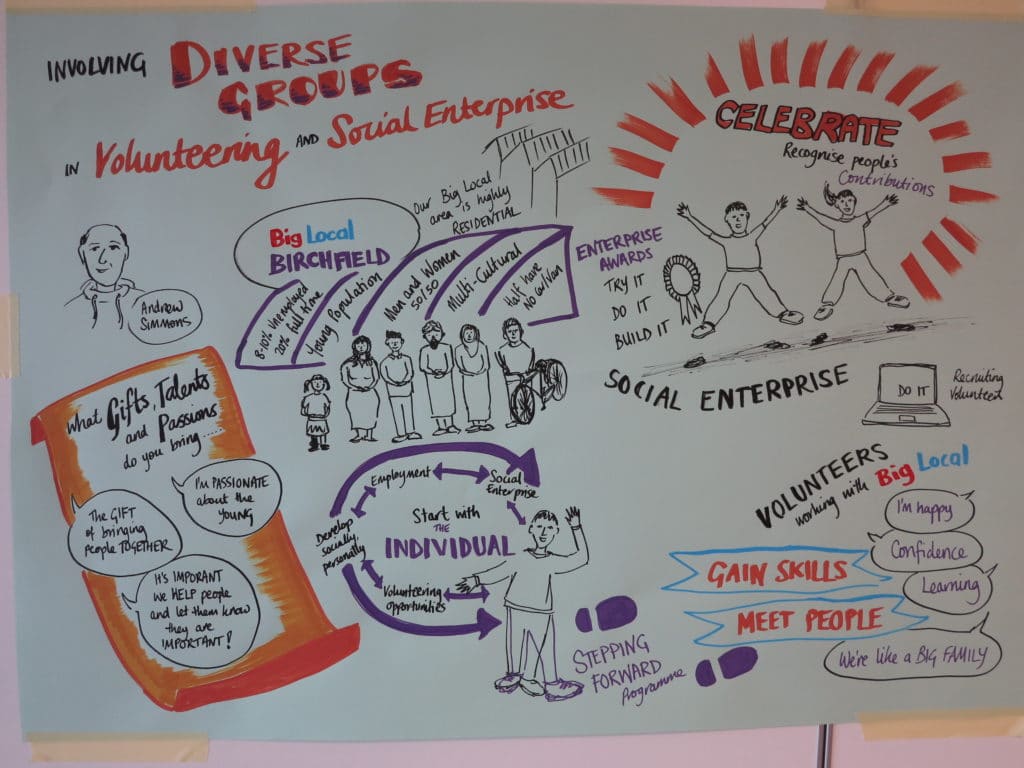 INVOLVING DIVERSE
GROUPS
IN Volunteering AND Social Enterprise
Andrew
Simmons
Big Local
BIRCHFIELD
Our Big Local
area is highly
RESIDENTIAL
8-10% unemployed
20% full time
Young Population
Men and Women
50/50
Multi-Cultural
Half have
No car/Van
ENTERPRISE
AWARDS
TRY IT
DO IT
BUILD IT
CELEBRATE
Recognise people's
Contributions
SOCIAL ENTERPRISE
DO IT
Recruiting
Volunteers
What Gifts, Talents
and Passions
do you bring.....
I'm PASSIONATE
about the
YOUNG
The GIFT
of bringing
people TOGETHER
It's IMPORANT
we HELP people
and let them know
they are
IMPORTANT!
Employment
Social
Enterprise
Develop
socially,
personally
Start with
THE
INDIVIDUAL
Volunteering
opportunities
STEPPING
FORWARD
Programme
VOLUNTEERS
working with Big Local
I'm happy
Confidence
Learning
We're like a BIG FAMILY
GAIN SKILLS
MEET PEOPLE